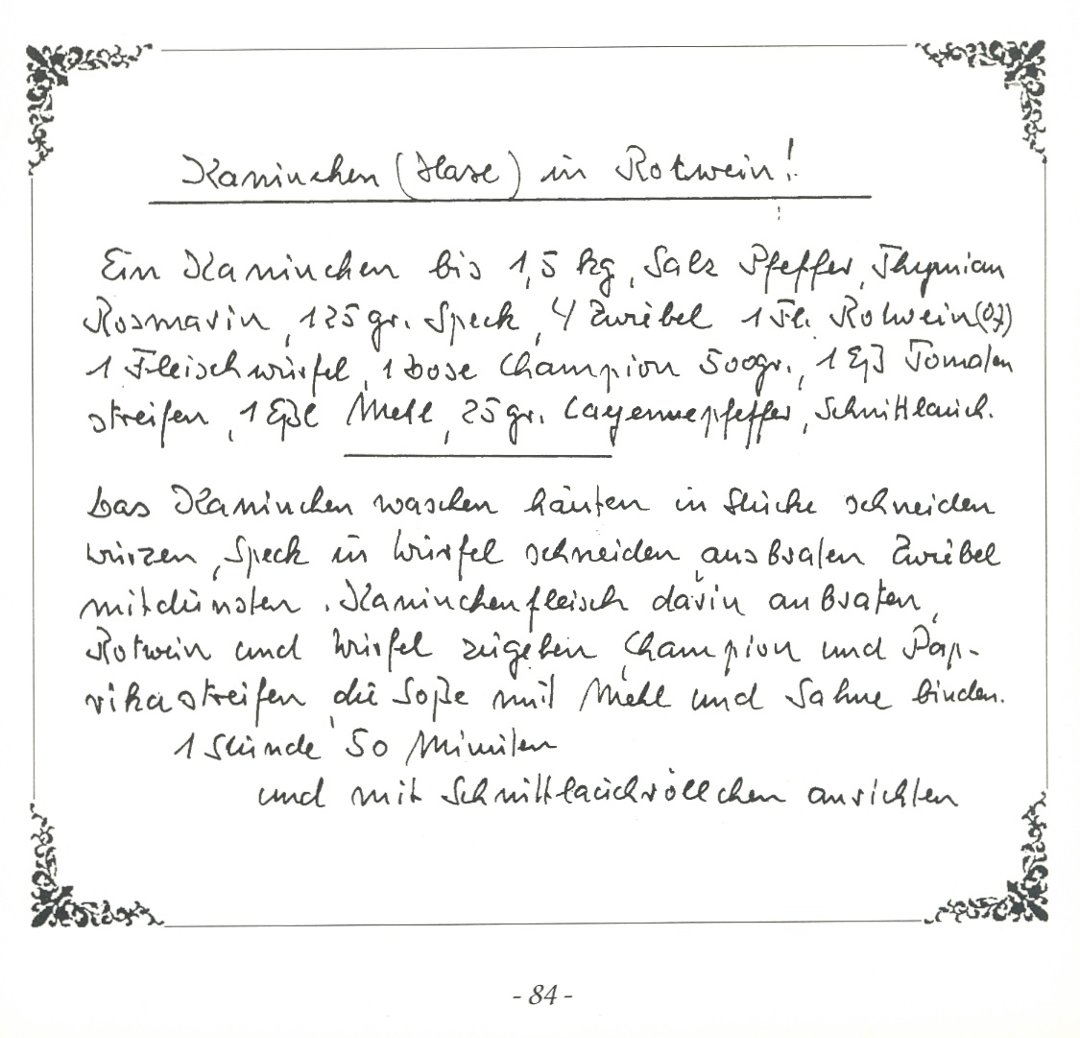 Kaninchen (Hase) in Rotwein!
Ein Kaninchen bis 1,5 kg, Salz Pfeffer, Thymian
Rosmarin, 125 gr. Speck, 4 Zwiebel 1 Fl. Rotwein (0,7)
1 Fleischwürfel, 1 Dose Champion 500gr., 1 Tomaten
streifen, 1 Eßl Mehl, 25 gr. Cayennepfeffer, Schnittlauch.
Das Kaninchen waschen häuten in Stücke schneiden
würzen, Speck in Würfel schneiden, ausbraten Zwiebel
mitdünsten. Kaninchenfleisch darin anbraten,
Rotwein und Würfel zugeben, Champion und Pap-
rikastreifen, die Soße mit Mehl und Sahne binden.
1 Stunde 50 Minuten
und mit Schnittlauchröllchen anrichten
- 84 -